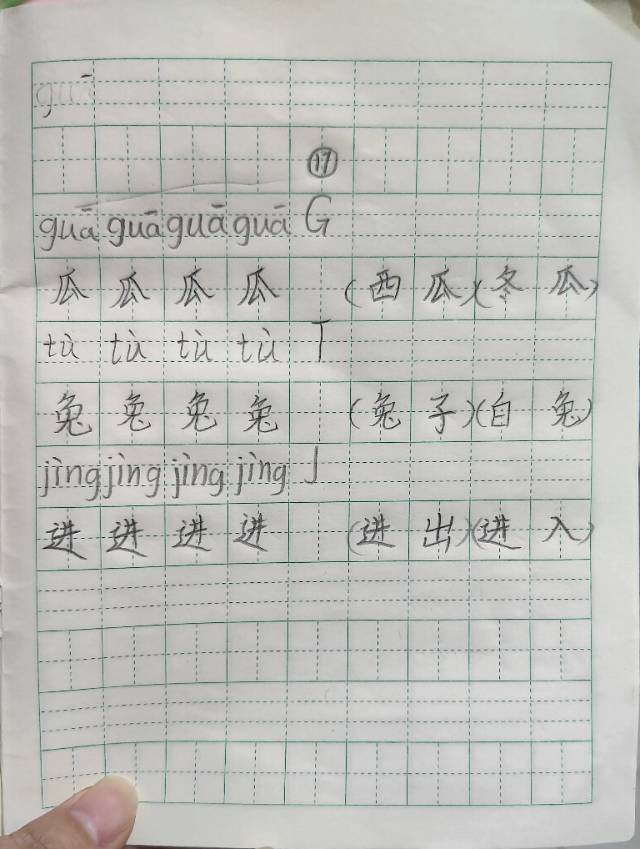 guā
⑰
guā guā guā guā G
瓜 瓜 瓜 瓜 (西瓜)(冬瓜)
tù tù tù tù T
兔 兔 兔 兔 (兔子)(白兔)
jìng jìng jìng jìng J
进 进 进 进 (进出)(进入)